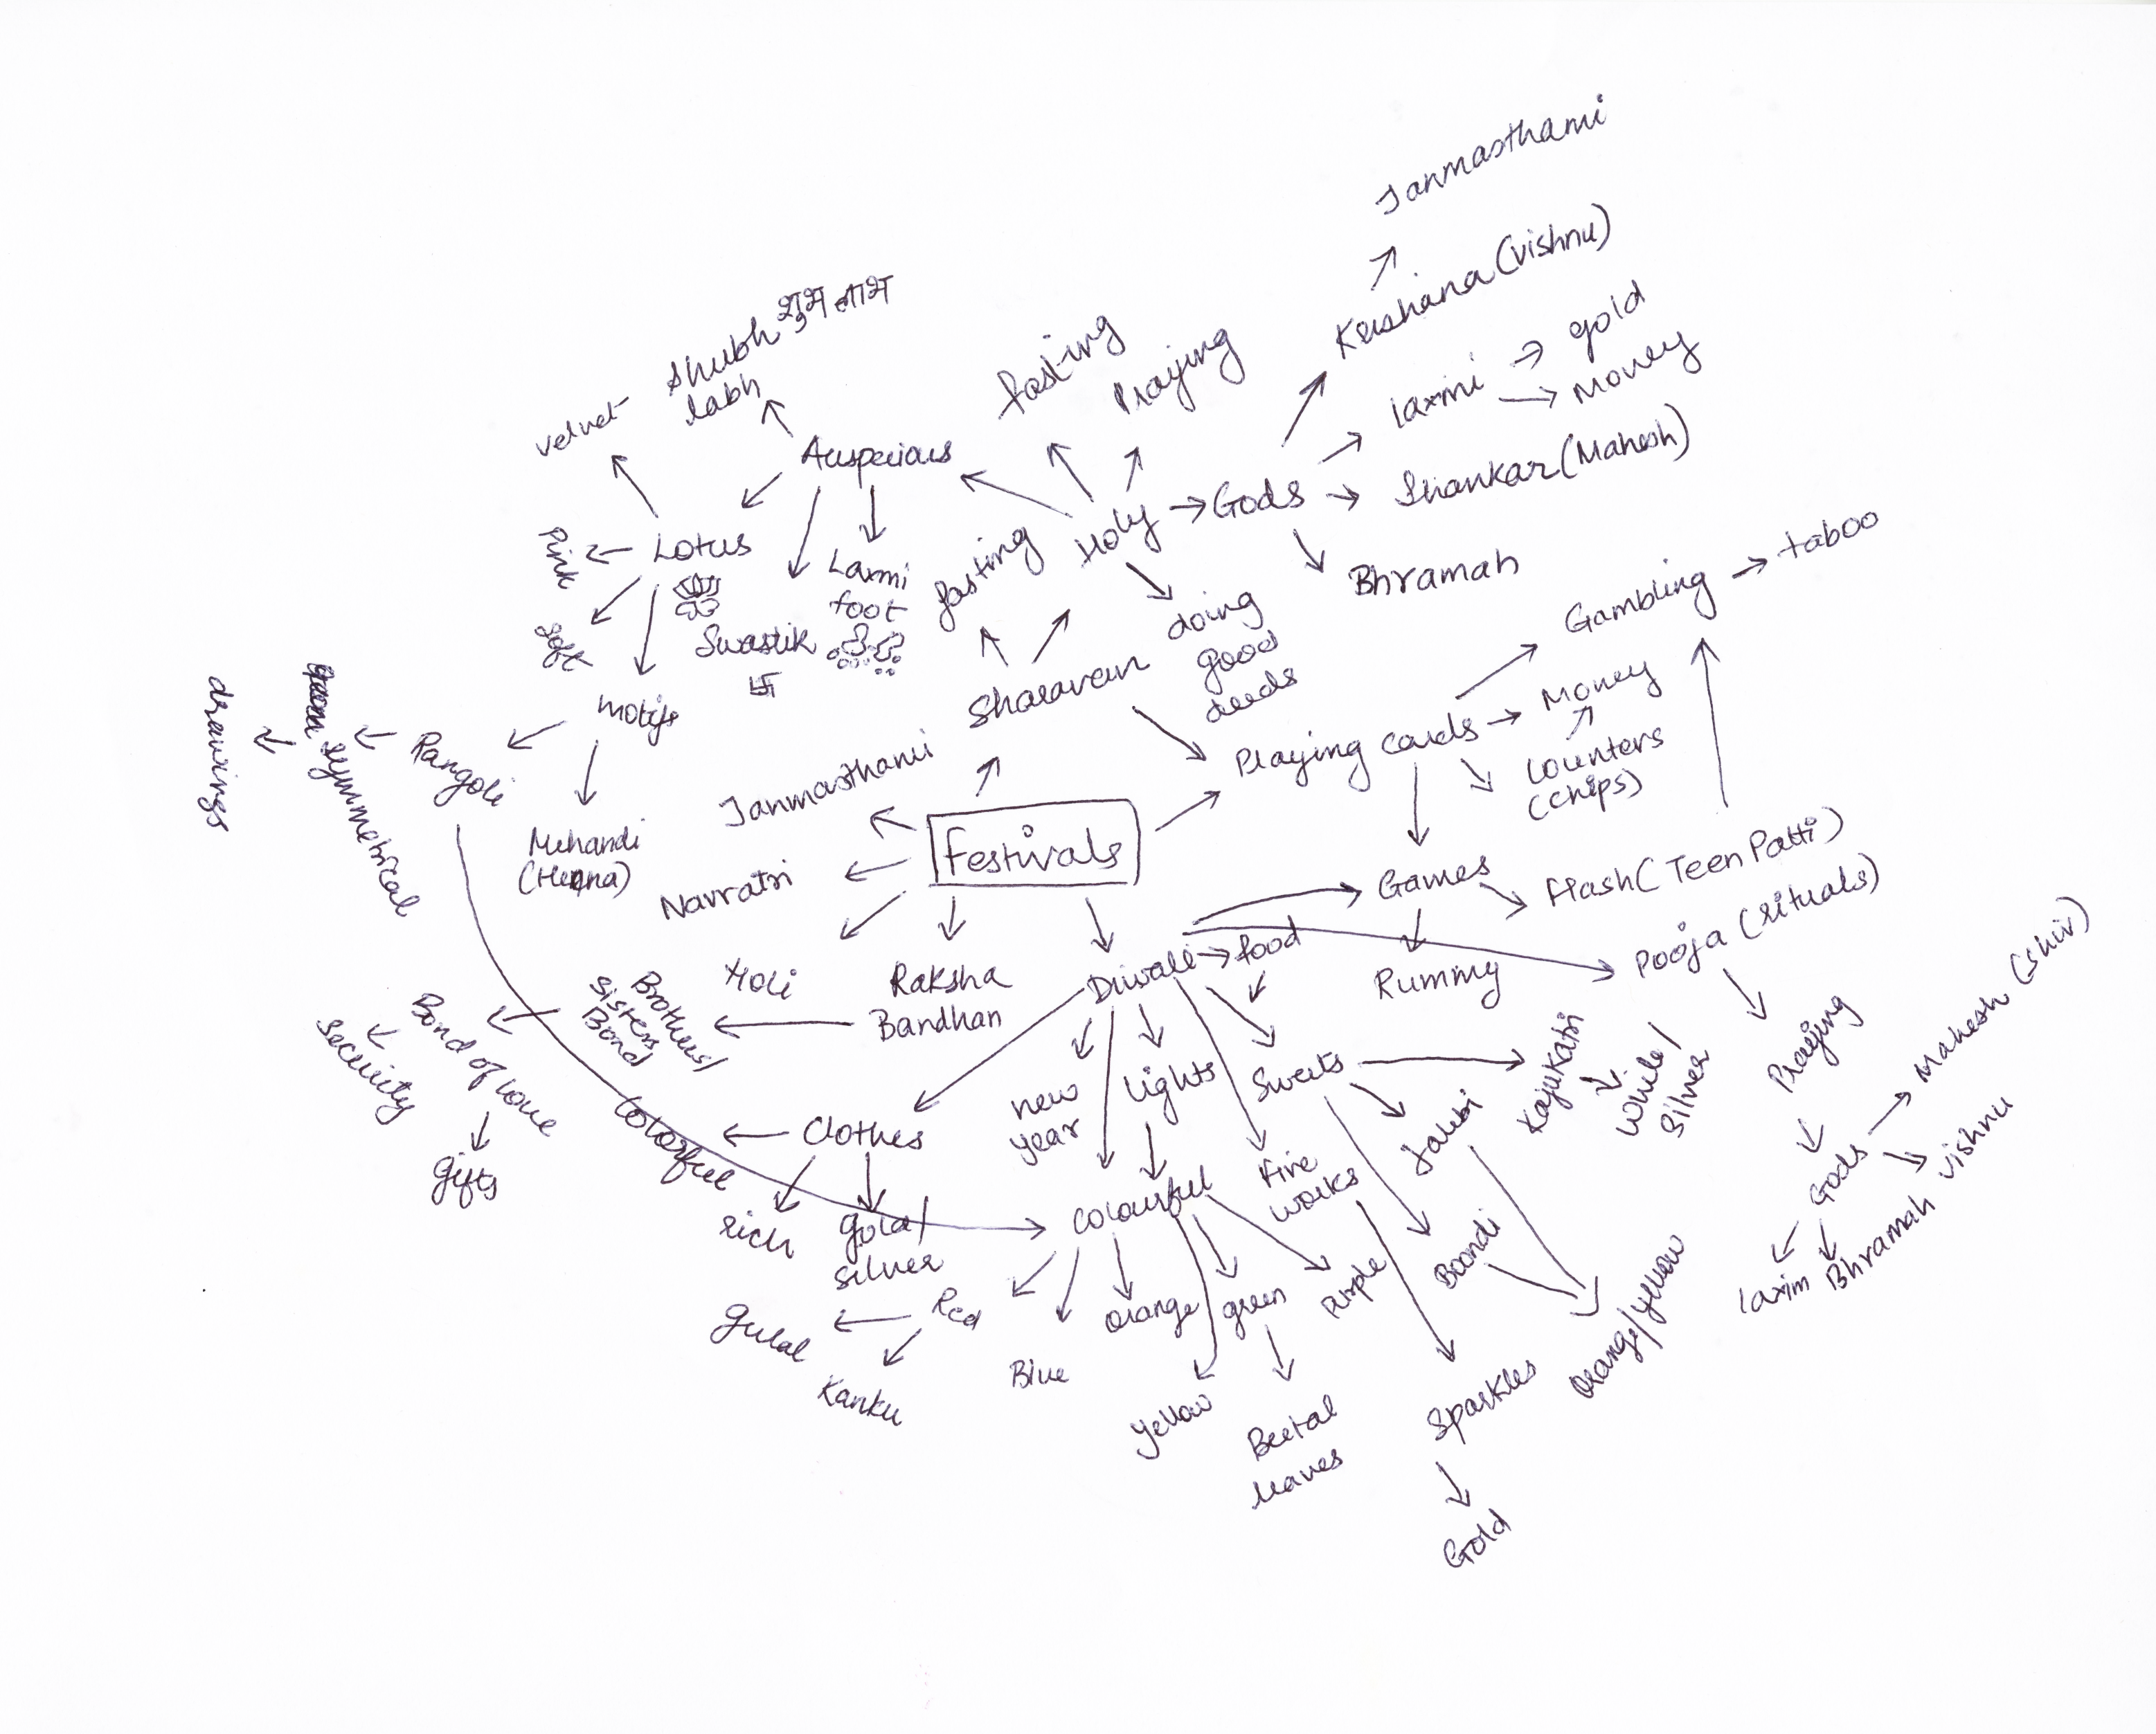 Janmasthami
Krishana (Vishnu)
laxmi
gold
Money
Shankar (Mahesh)
Bhramah
Gods
Holy
fasting
Praying
Shubh शुभ लाभ
labh
velvet
Auspecious
Lotus
Pink
Soft
Laxmi
foot
Swastik
卐
motifs
Rangoli
symmetrical
drawings
Mehandi
(Henna)
fasting
Sharavan
doing
good
deeds
Gambling
taboo
Playing cards
Money
Counters
(chips)
Janmasthami
Festivals
Navratri
Holi
Raksha
Bandhan
Brothers/
Sisters
Bond
Bond of love
Security
Gifts
Diwali
food
Games
Flash (Teen Patti)
Rummy
Pooja (rituals)
Praying
Gods
Mahesh (Shiv)
Vishnu
Bhramah
laxim
Clothes
Colorful
rich
gold/
silver
new
year
lights
Sweets
Kajukatri
White/
Silver
Jalebi
Boondi
Orange/yellow
Fire
works
Sparkles
Gold
Colourful
Red
Gulal
Kanku
Blue
Orange
green
Purple
Yellow
Beetal
leaves